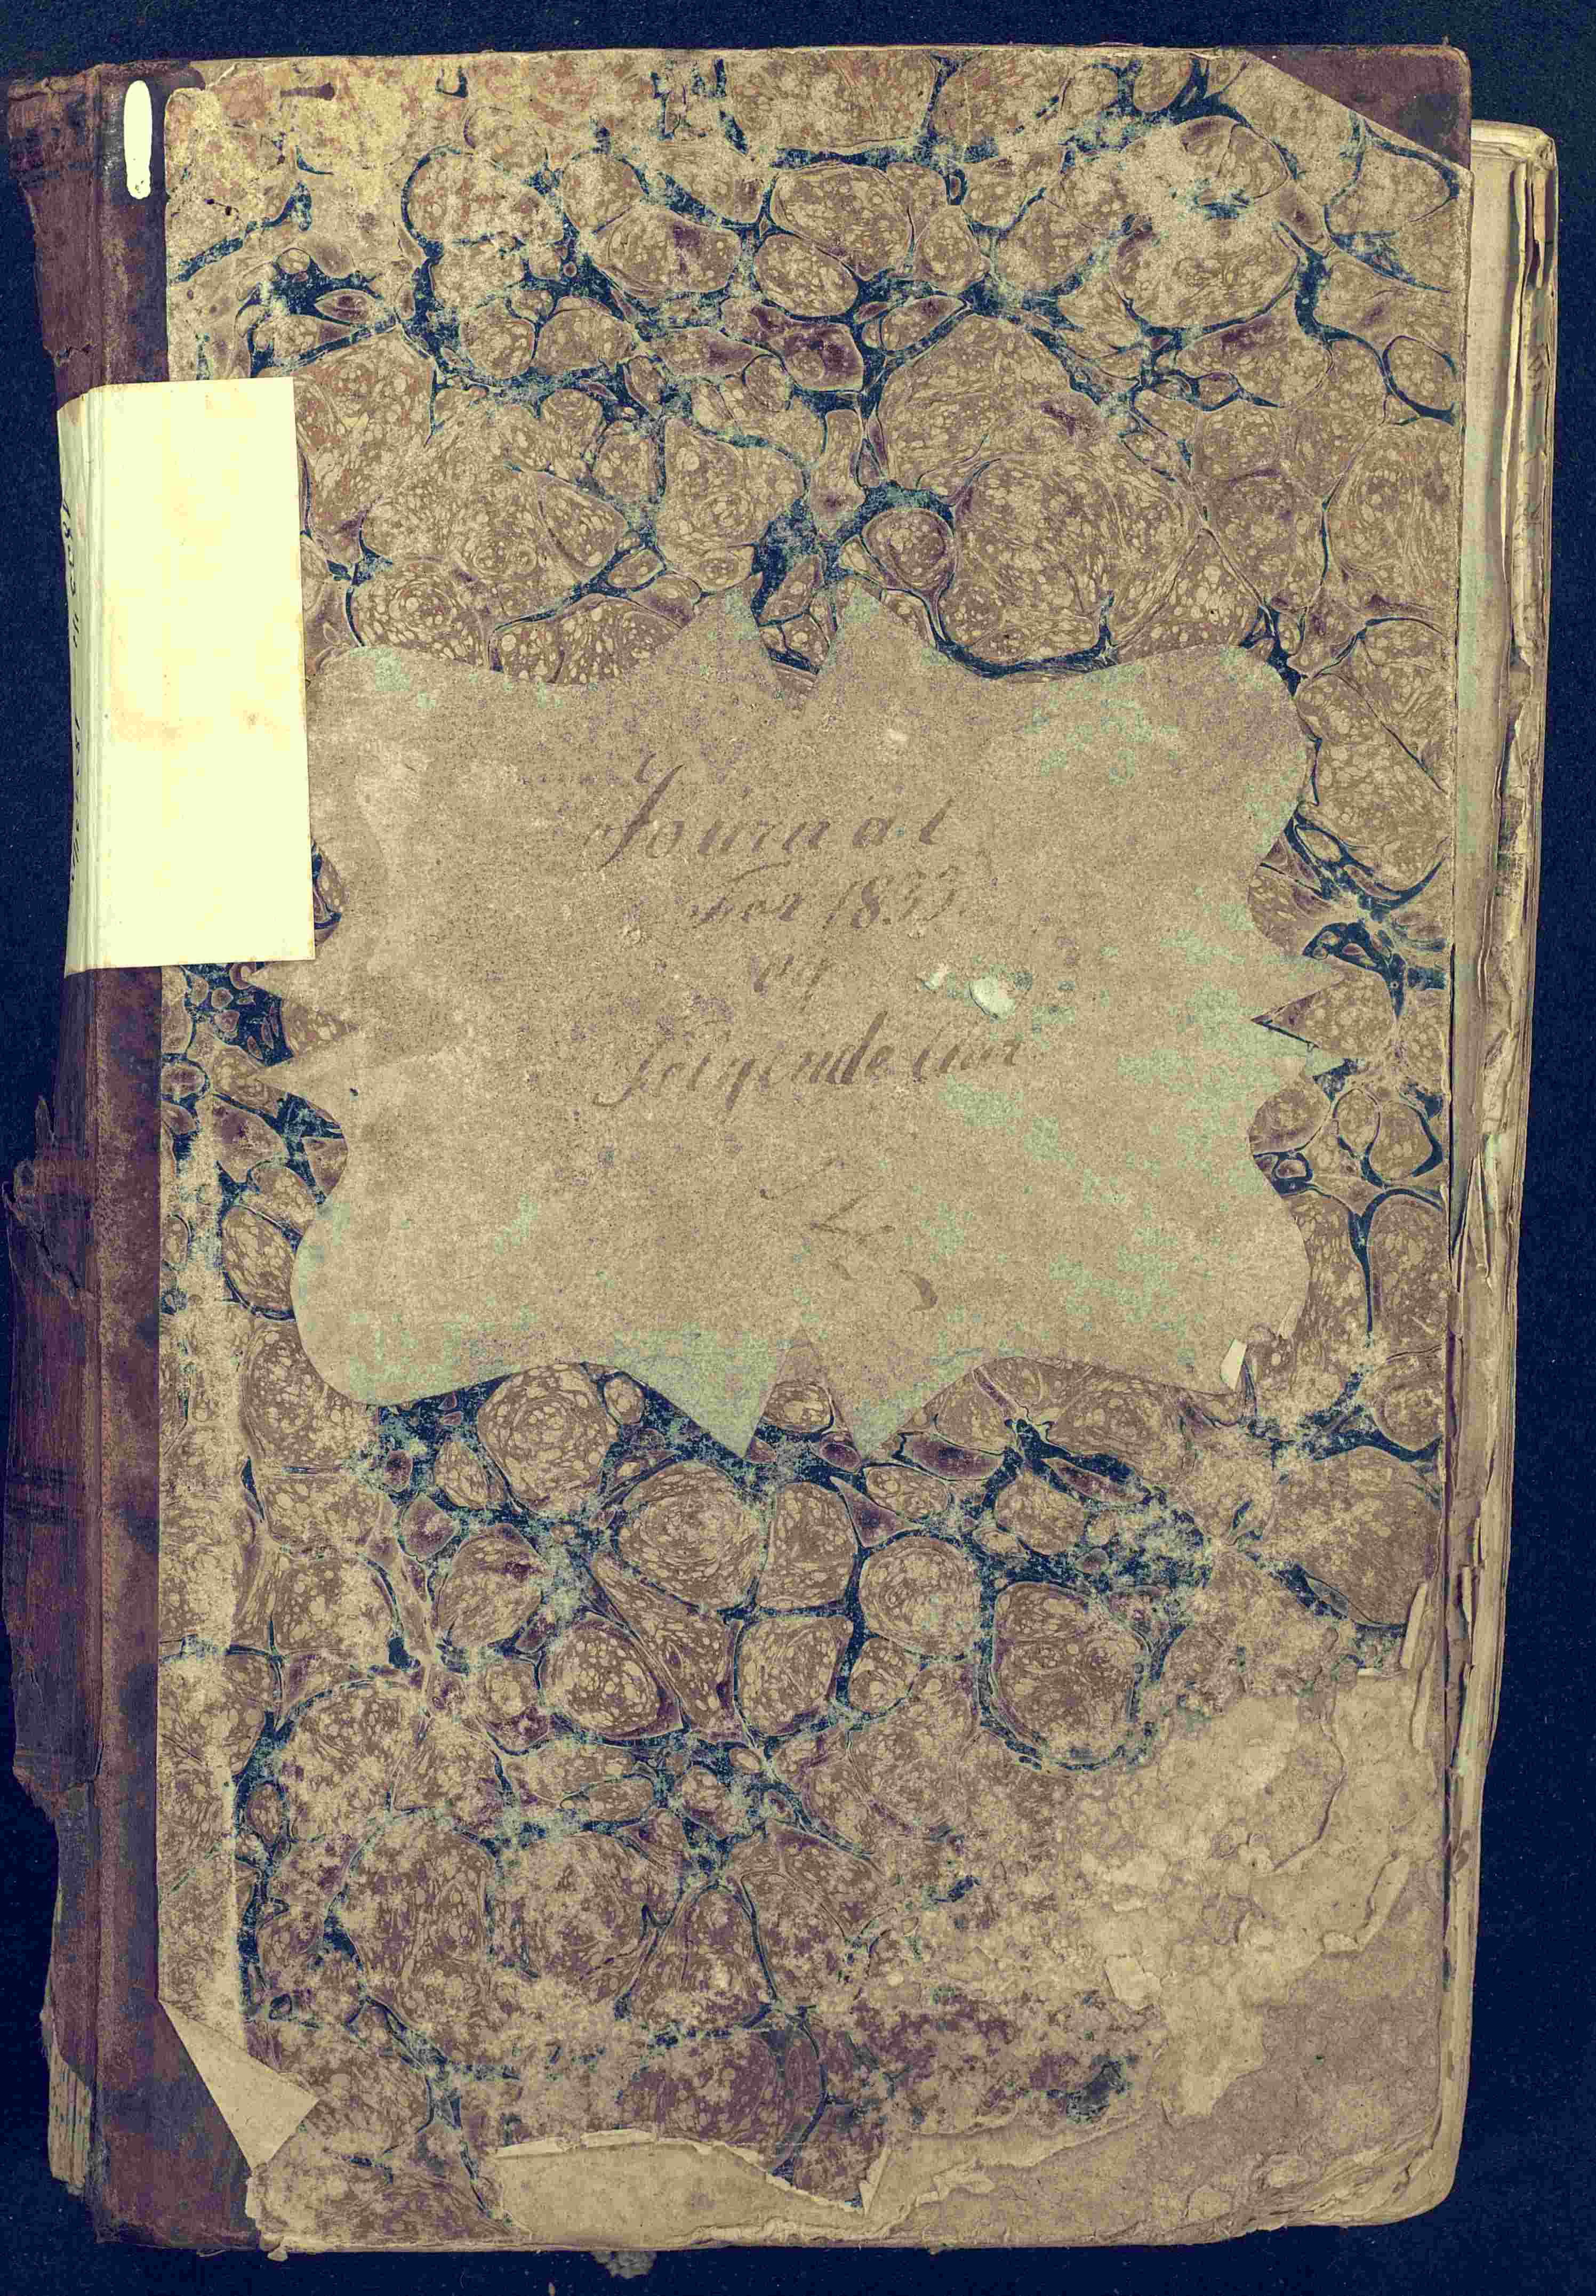 Journal
for 1833
og
følgende aar